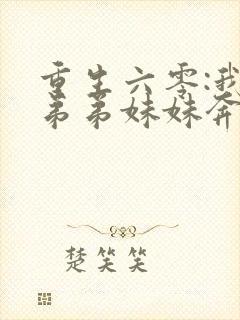 重生六零:我
弟弟妹妹奔
楚笑笑